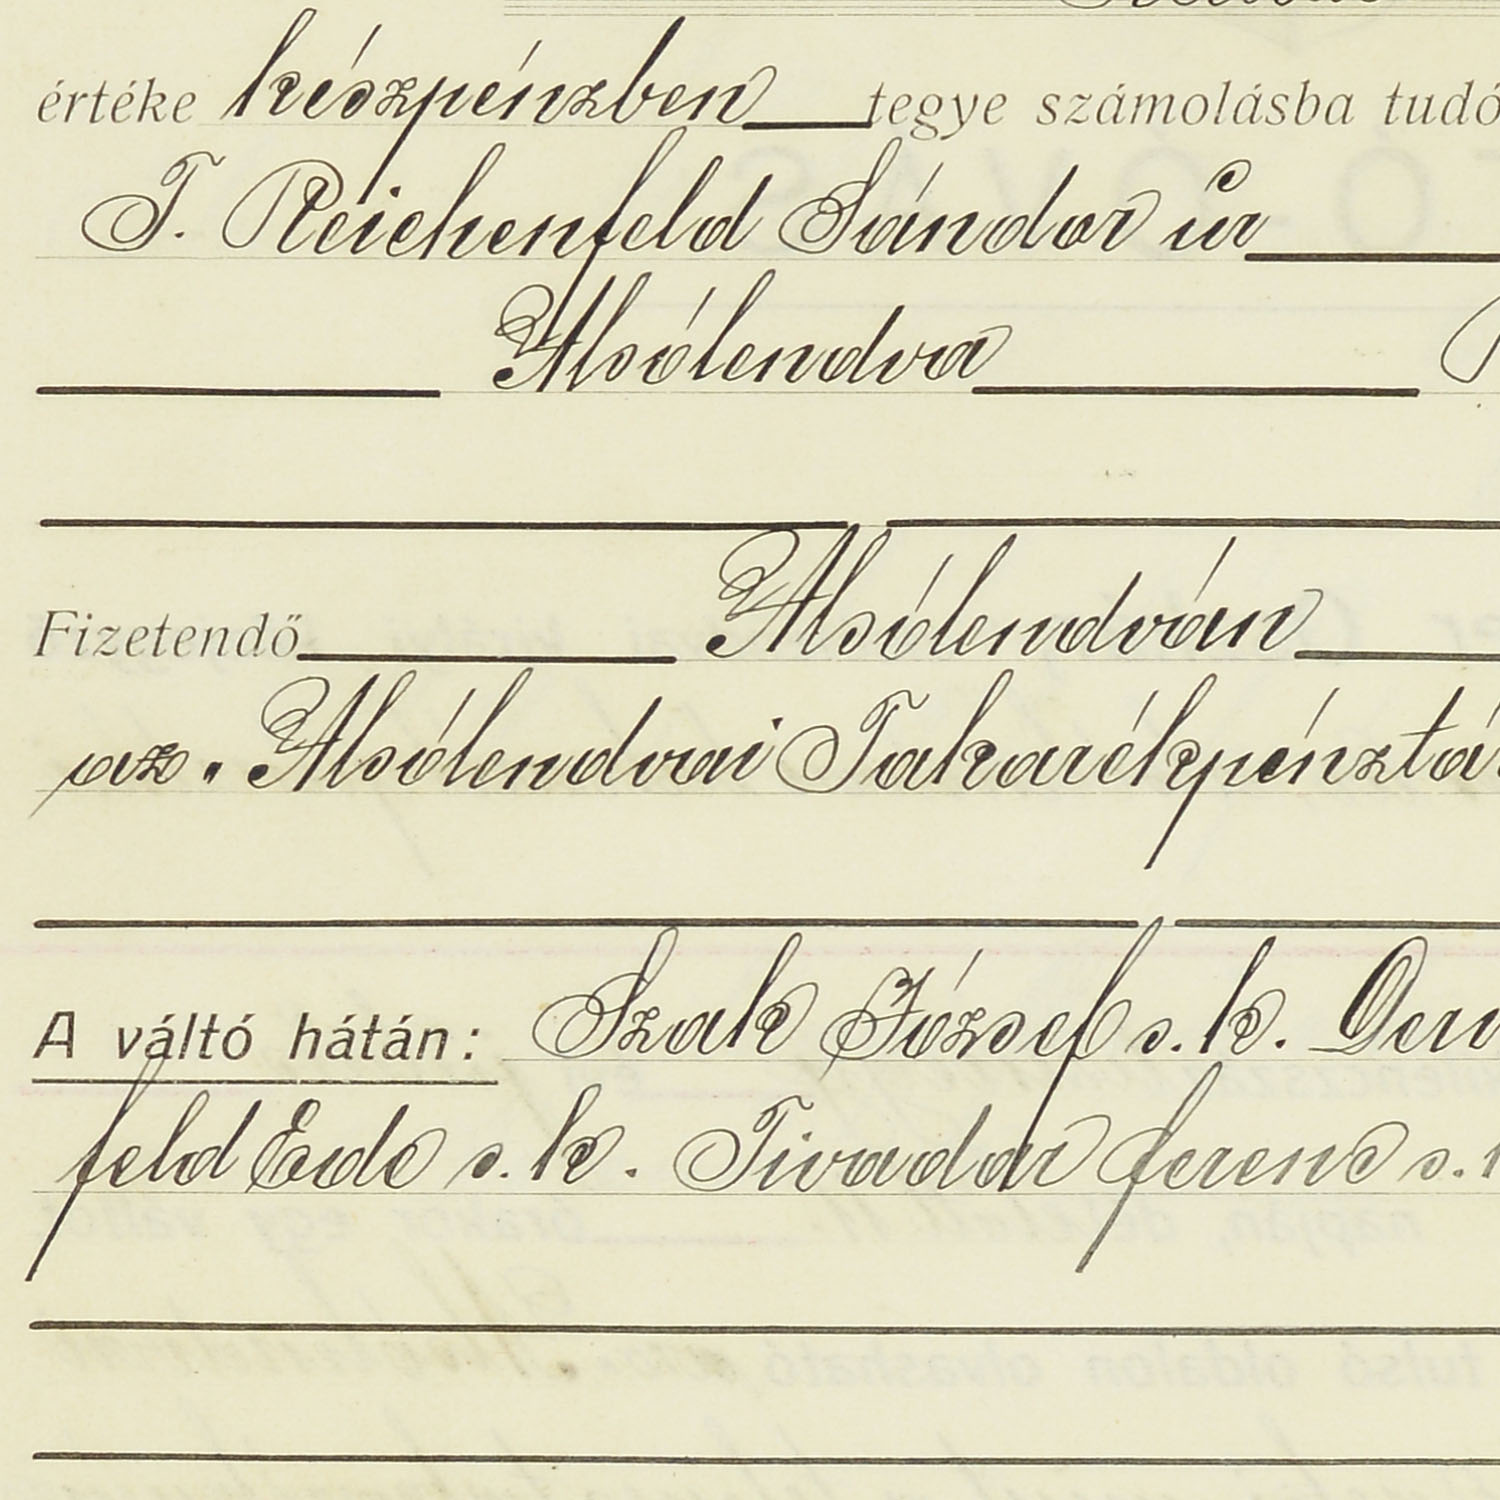 értéke készpénzben tegye számolásba tudó
T. Reichenfeld Sándor úr
Alsólendva
Fizetendő Alsólendván
az. Alsólendvai Takarékpénztár
A váltó hátán: Szak József s. k.
feld Ede s. k. Tivadar ferenc s.